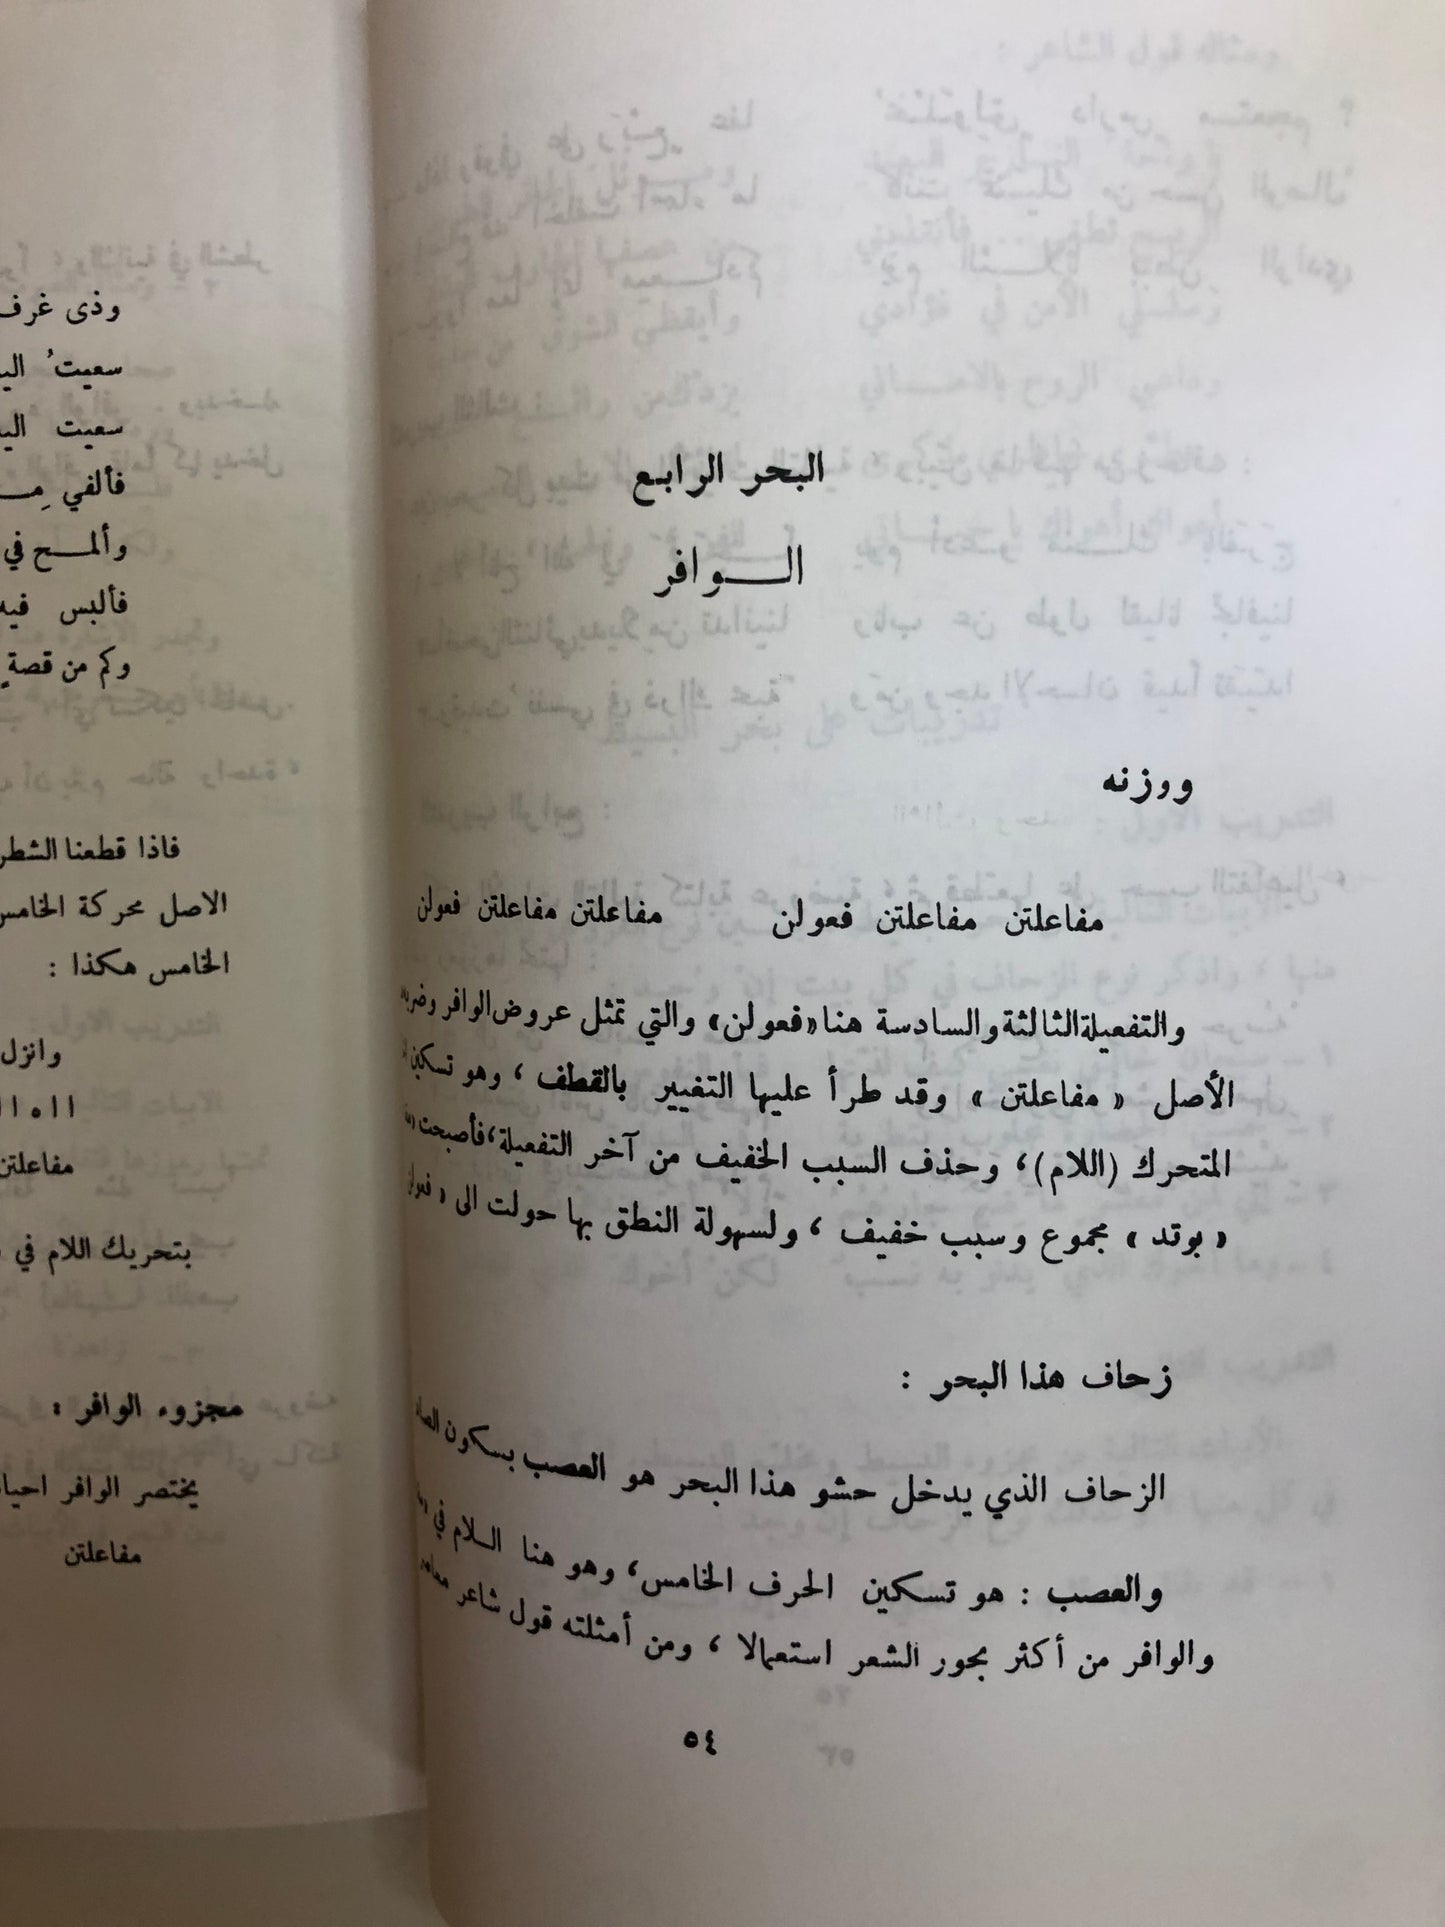 البحر الرابع
الـــوافر
ووزنه
مفاعلتن مفاعلتن فعولن مفاعلتن مفاعلتن فعولن
والتفعيلة الثالثة والسادسة هنا «فعولن» والتي تمثل عروض الوافر وضربه
الأصل « مفاعلتن » وقد طرأ عليها التغيير بالقطف ، وهو تسكين
المتحرك (اللام) ، وحذف السبب الخفيف من آخر التفعيلة ، فأصبحت
« بوتد » مجموع وسبب خفيف ، ولسهولة النطق بها حولت الى « فعولن
زحاف هذا البحر :
الزحاف الذي يدخل حشو هذا البحر هو العصب بسكون
والعصب : هو تسكين الحرف الخامس ، وهو هنا اللام في
والوافر من أكثر بحور الشعر استعمالا ، ومن أمثلته قول شاعر
٥٤
وذى غرف
سعيتُ
سعيت
فألفي
وألمــح في
فألبس فيه
وكم من قصةٍ
فاذا قطعنا الشطر
الاصل محركة الخامس
الخامس هكذا :
وانزل
ااه ااا
مفاعلتن
بتحريك اللام في
مجزوء الوافر :
يختصر الوافر
مفاعلتن